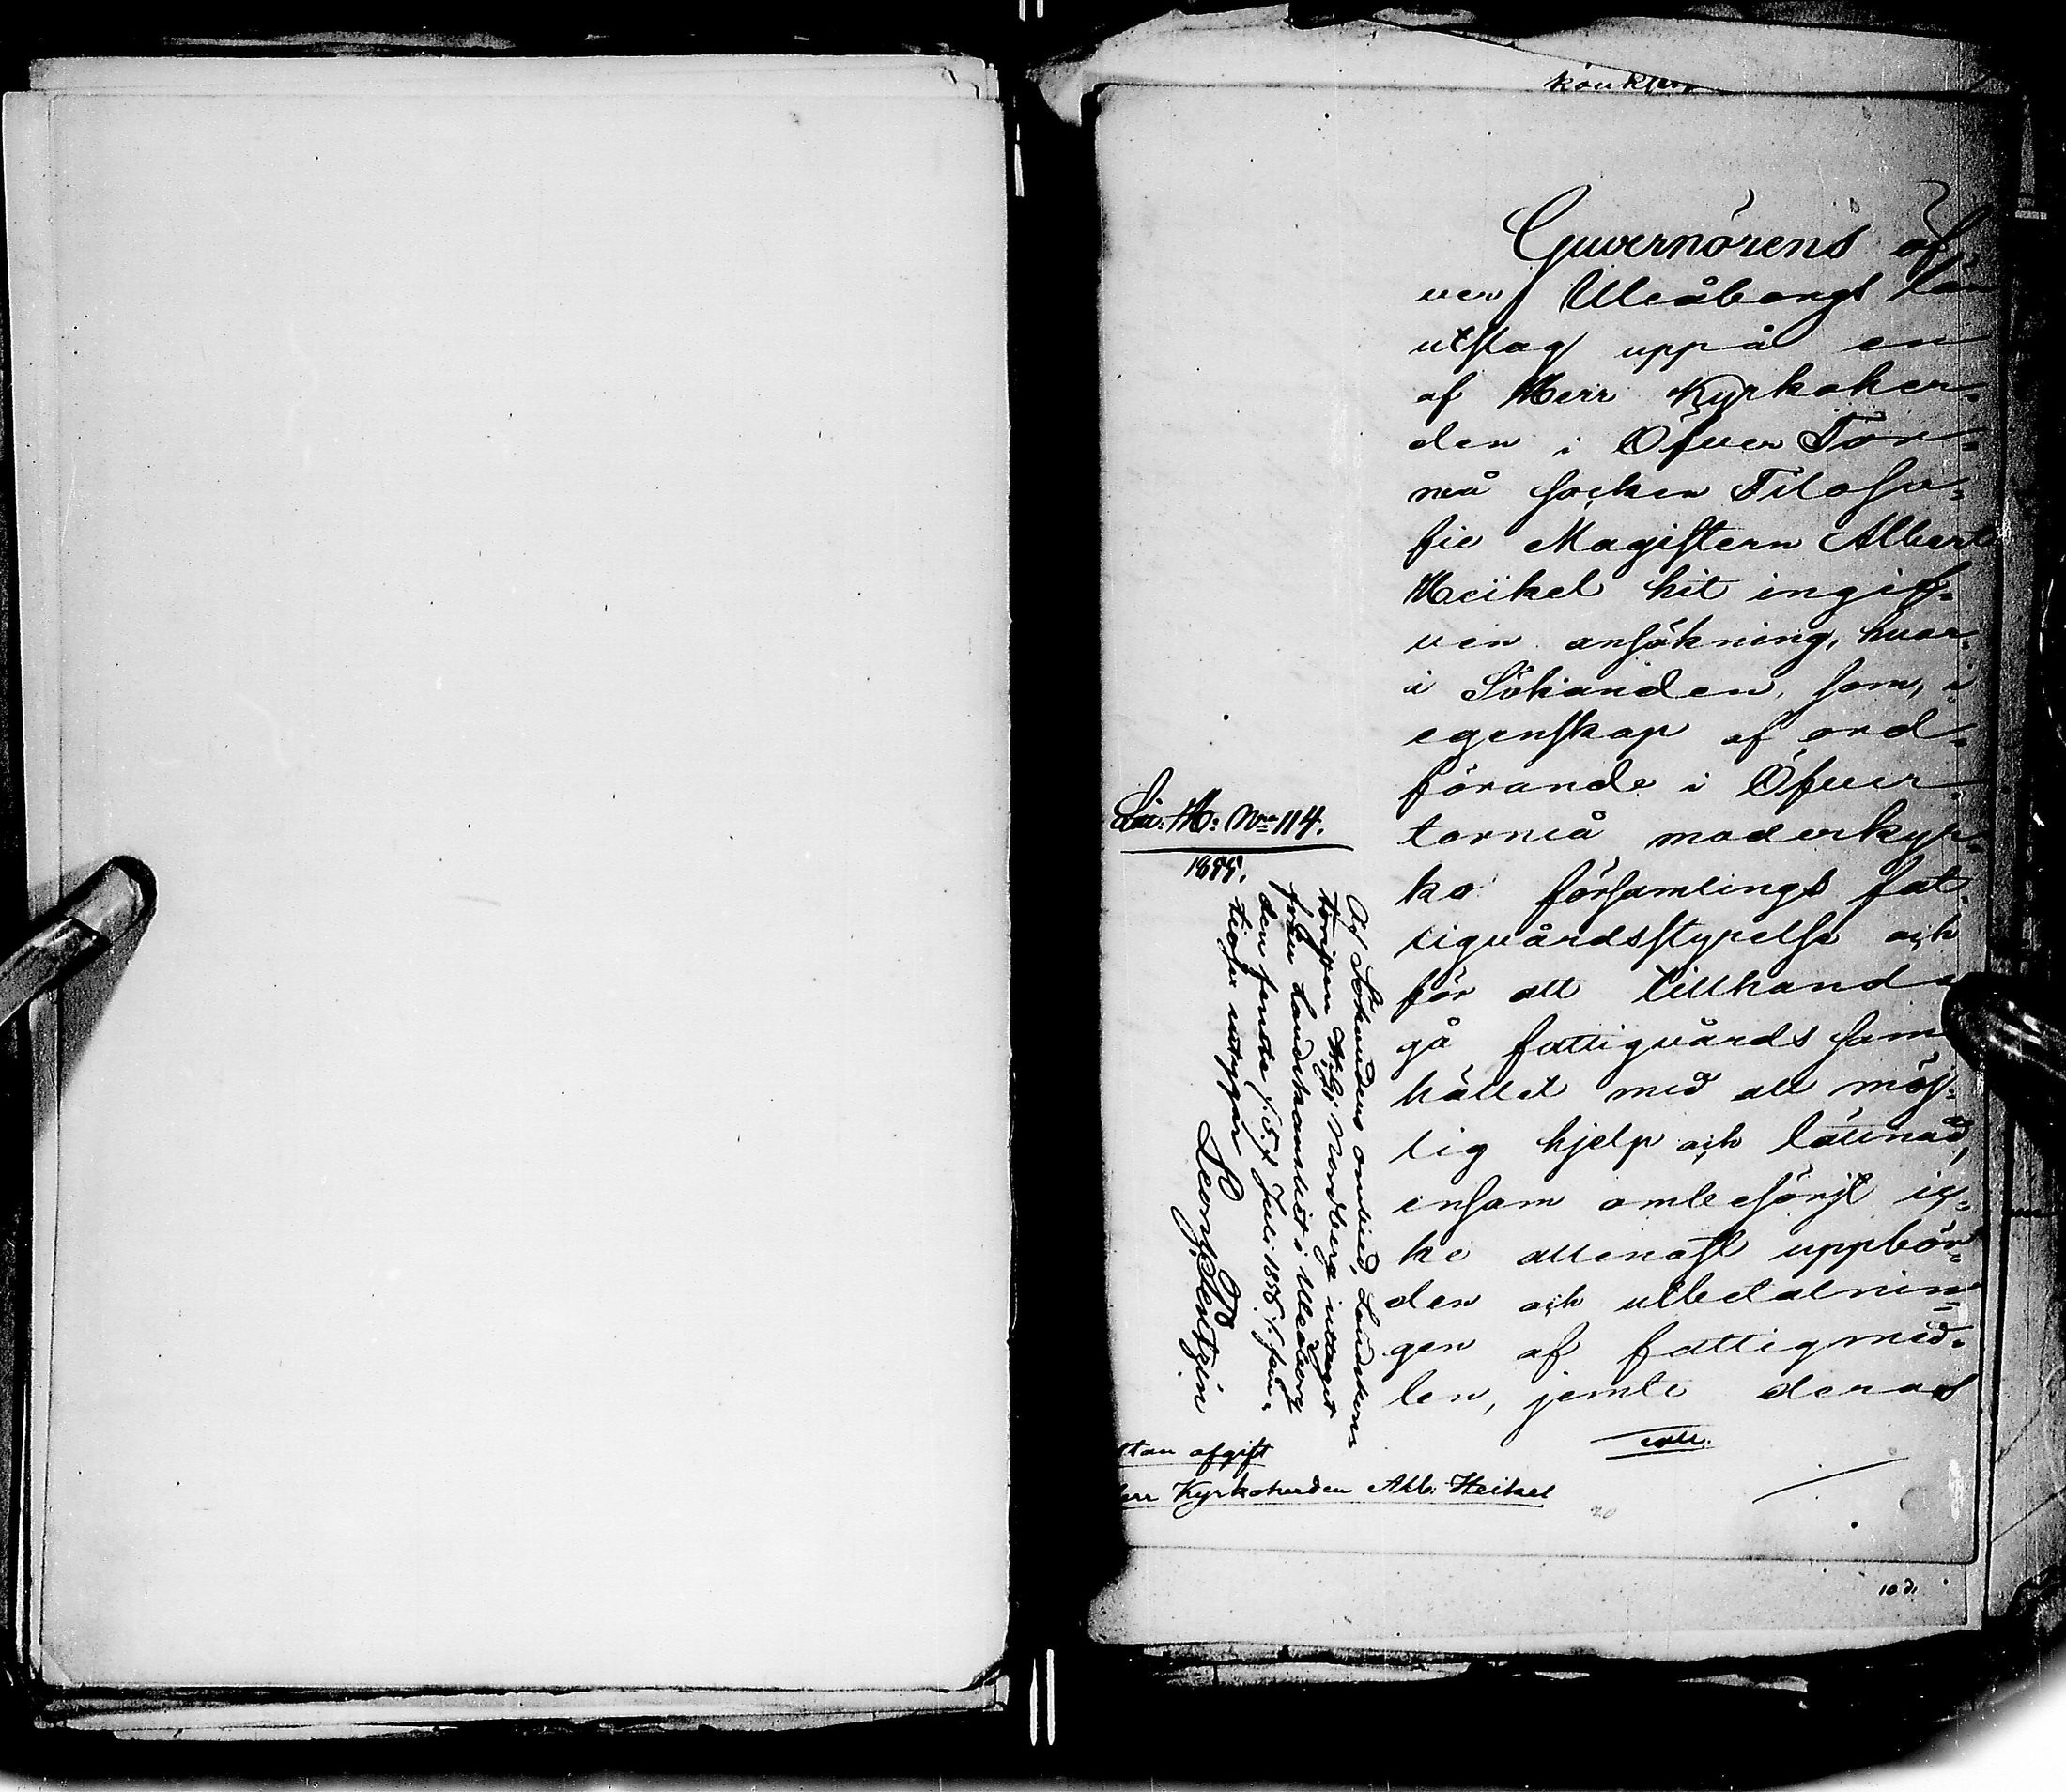 Guvernörens öf-
ver Uleåborgs län
utslag uppå en
af Herr Kyrkoher-
den i Öfver Tor-
neå socken Filoso-
fie Magistern Albert
Heikel hit ingif-
ven ansökning, hvar-
i Sökanden, som, i
egenskap af ord-
förande i Öfver-
torneå moderkyr-
ko församlings fat-
tigvårdsstyrelse och
för att tillhanda
gå fattigvårds sam
hället med all möj-
lig hjelp och lättnad,
ensam ombesörjt ic-
ke allenast uppbör-
den och utbetalnin-
gen af fattigmed-
len, jemte deras
Litt: H: No 114.
1888.
Af Sökandens ombud, Landskans
listen Nordberg uttaget
från Landskansliet i Uleåborg
den femte /:5:/ Juli 188 /: fem:
tiofyra intygar
Utan afgift
Herr Kyrkoherden Alb: Heikel
20
10 d.